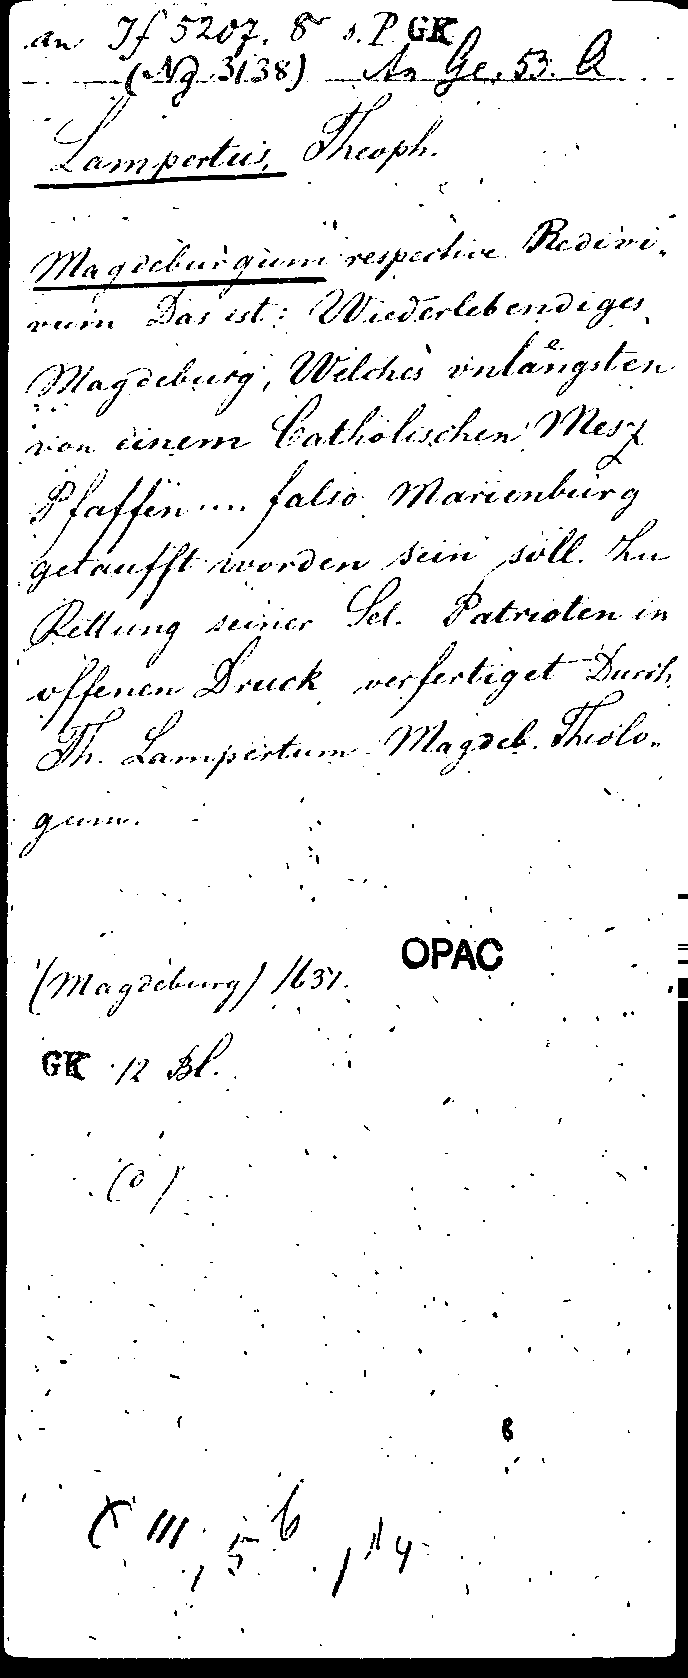 an If 5207. 8° s. P GK
(Ng 3138) An Ge. 53. Q
Lampertus, Theoph.
Magdeburgum respective Redivi-
vum Das ist: Wiederlebendiges
Magdeburg, Welches vnlängsten
von einem Catholischen Mesz
Pfaffen ... falso Marienburg
getaufft worden sein soll. Zu
Rettung seiner Sel. Patrioten in
offenen Druck verfertiget Durch
Th. Lampertum Magdeb. Theolo-
gum.
(Magdeburg) 1631.
OPAC
GK 12 Bl.
(o)